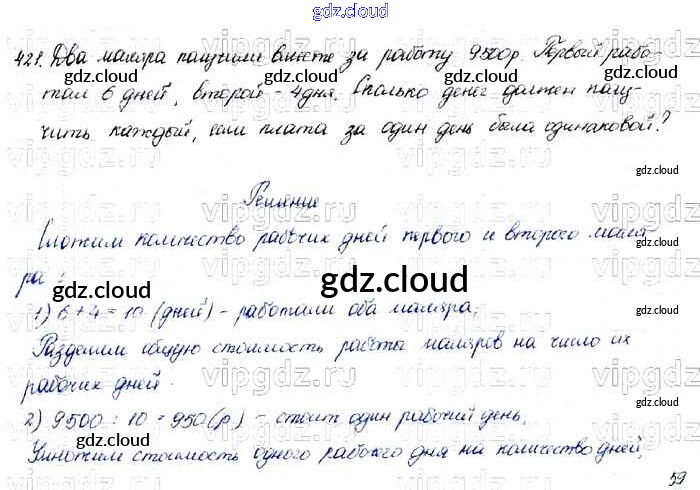 gdz.cloud
421. Два маляра получили вместе за работу 9500р. Первый рабо-
тал 6 дней, второй - 4дня. Сколько денег должен полу-
чить каждый, если плата за один день была одинаковой?
Решение
Сложим количество рабочих дней первого и второго маля-
ра:
1) 6+4=10 (дней) - работали оба маляра;
Разделим общую стоимость работы маляров на число их
рабочих дней.
2) 9500 : 10 = 950 (р) - стоит один рабочий день.
Умножим стоимость одного рабочего дня на количество дней,
59